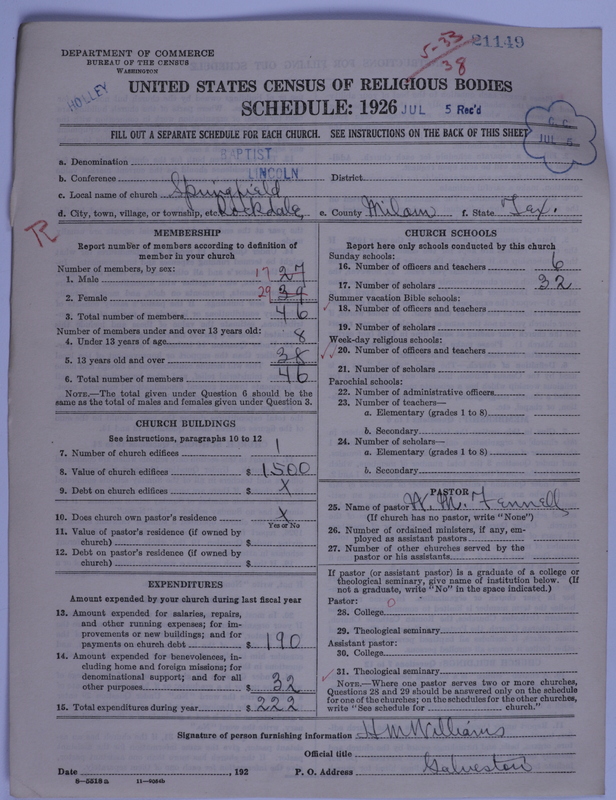 DEPARTMENT OF COMMERCE
BUREAU OF THE CENSUS
WASHINGTON
5-33
38
21149
HOLLEY
UNITED STATES CENSUS OF RELIGIOUS BODIES
SCHEDULE: 1926 JUL 5 Rec'd
G. C.
JUL 6
FILL OUT A SEPARATE SCHEDULE FOR EACH CHURCH. SEE INSTRUCTIONS ON THE BACK OF THIS SHEET
a. Denomination BAPTIST
b. Conference LINCOLN District
c. Local name of church Springfield
d. City, town, village, or township, etc. Rockdale, e. County Milam f. State Tex.
MEMBERSHIP
Report number of members according to definition of
member in your church
Number of members, by sex:
1. Male 17 27
2. Female 29 39
3. Total number of members 46
Number of members under and over 13 years old:
4. Under 13 years of age 8
5. 13 years old and over 38
6. Total number of members 46
NOTE.—The total given under Question 6 should be
same as the total of males and females given under Question 3.
CHURCH BUILDINGS
See instructions, paragraphs 10 to 12
7. Number of church edifices 1
8. Value of church edifices $ 1500
9. Debt on church edifices $ X
10. Does church own pastor's residence X
Yes or No
11. Value of pastor's residence (if owned by
church) $
12. Debt on pastor's residence (if owned by
church) $
EXPENDITURES
Amount expended by your church during last fiscal year
13. Amount expended for salaries, repairs,
and other running expenses; for im-
provements or new buildings; and for
payments on church debt $ 190
14. Amount expended for benevolences, in-
cluding home and foreign missions; for
denominational support; and for all
other purposes $ 32
15. Total expenditures during year $ 222
CHURCH SCHOOLS
Report here only schools conducted by this church
Sunday schools:
16. Number of officers and teachers 6
17. Number of scholars 32
Summer vacation Bible schools:
18. Number of officers and teachers
19. Number of scholars
Week-day religious schools:
20. Number of officers and teachers
21. Number of scholars
Parochial schools:
22. Number of administrative officers
23. Number of teachers—
a. Elementary (grades 1 to 8)
b. Secondary
24. Number of scholars—
a. Elementary (grades 1 to 8)
b. Secondary
PASTOR
25. Name of pastor W. M. Fennell
(If church has no pastor, write "None")
26. Number of ordained ministers, if any, em-
ployed as assistant pastors
27. Number of other churches served by the
pastor or his assistants
If pastor (or assistant pastor) is a graduate of a college or
theological seminary, give name of institution below. (If
not a graduate, write "No" in the space indicated.)
Pastor: 0
28. College
29. Theological seminary
Assistant pastor:
30. College
31. Theological seminary
NOTE.—Where one pastor serves two or more churches,
Questions 28 and 29 should be answered only on the schedule
for one of the churches; on the schedules for the other churches,
write "See schedule for church."
Signature of person furnishing information H M Williams
Official title
Date , 192 P. O. Address Galveston
8—5518a 11—9584b